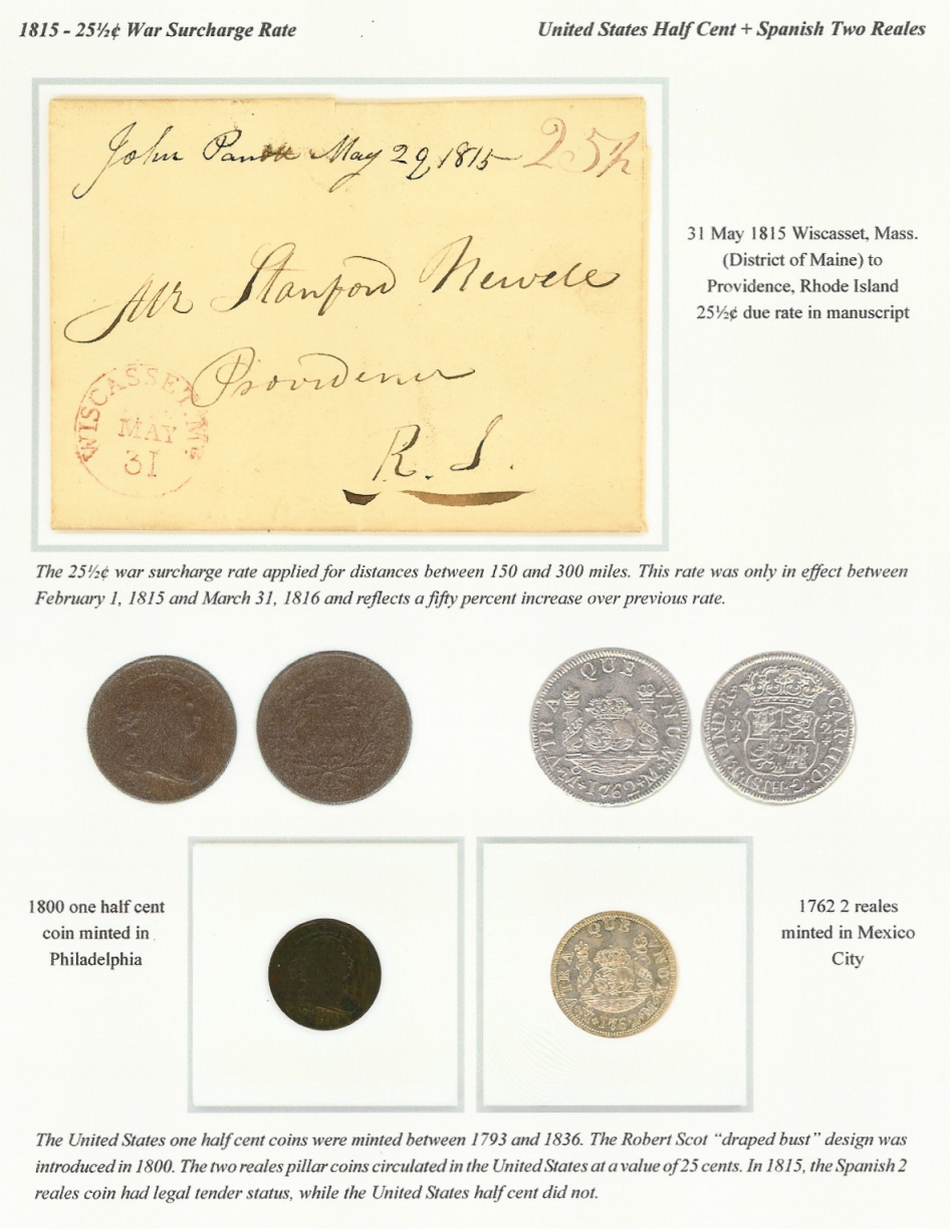 1815 - 25½¢ War Surcharge Rate
United States Half Cent + Spanish Two Reales
John May 29 1815 25½
Mr Stanford Newell
Providence
R. I.
WISCASSET. Me
MAY
31
31 May 1815 Wiscasset, Mass.
(District of Maine) to
Providence, Rhode Island
25½¢ due rate in manuscript
The 25½¢ war surcharge rate applied for distances between 150 and 300 miles. This rate was only in effect between
February 1, 1815 and March 31, 1816 and reflects a fifty percent increase over previous rate.
VTRA QUE VNUM
M 1762 M
CAR III D G HISP ET IND R
1800 one half cent
coin minted in
Philadelphia
VTRA QUE VNUM
M 1762 M
1762 2 reales
minted in Mexico
City
The United States one half cent coins were minted between 1793 and 1836. The Robert Scot “draped bust” design was
introduced in 1800. The two reales pillar coins circulated in the United States at a value of 25 cents. In 1815, the Spanish 2
reales coin had legal tender status, while the United States half cent did not.